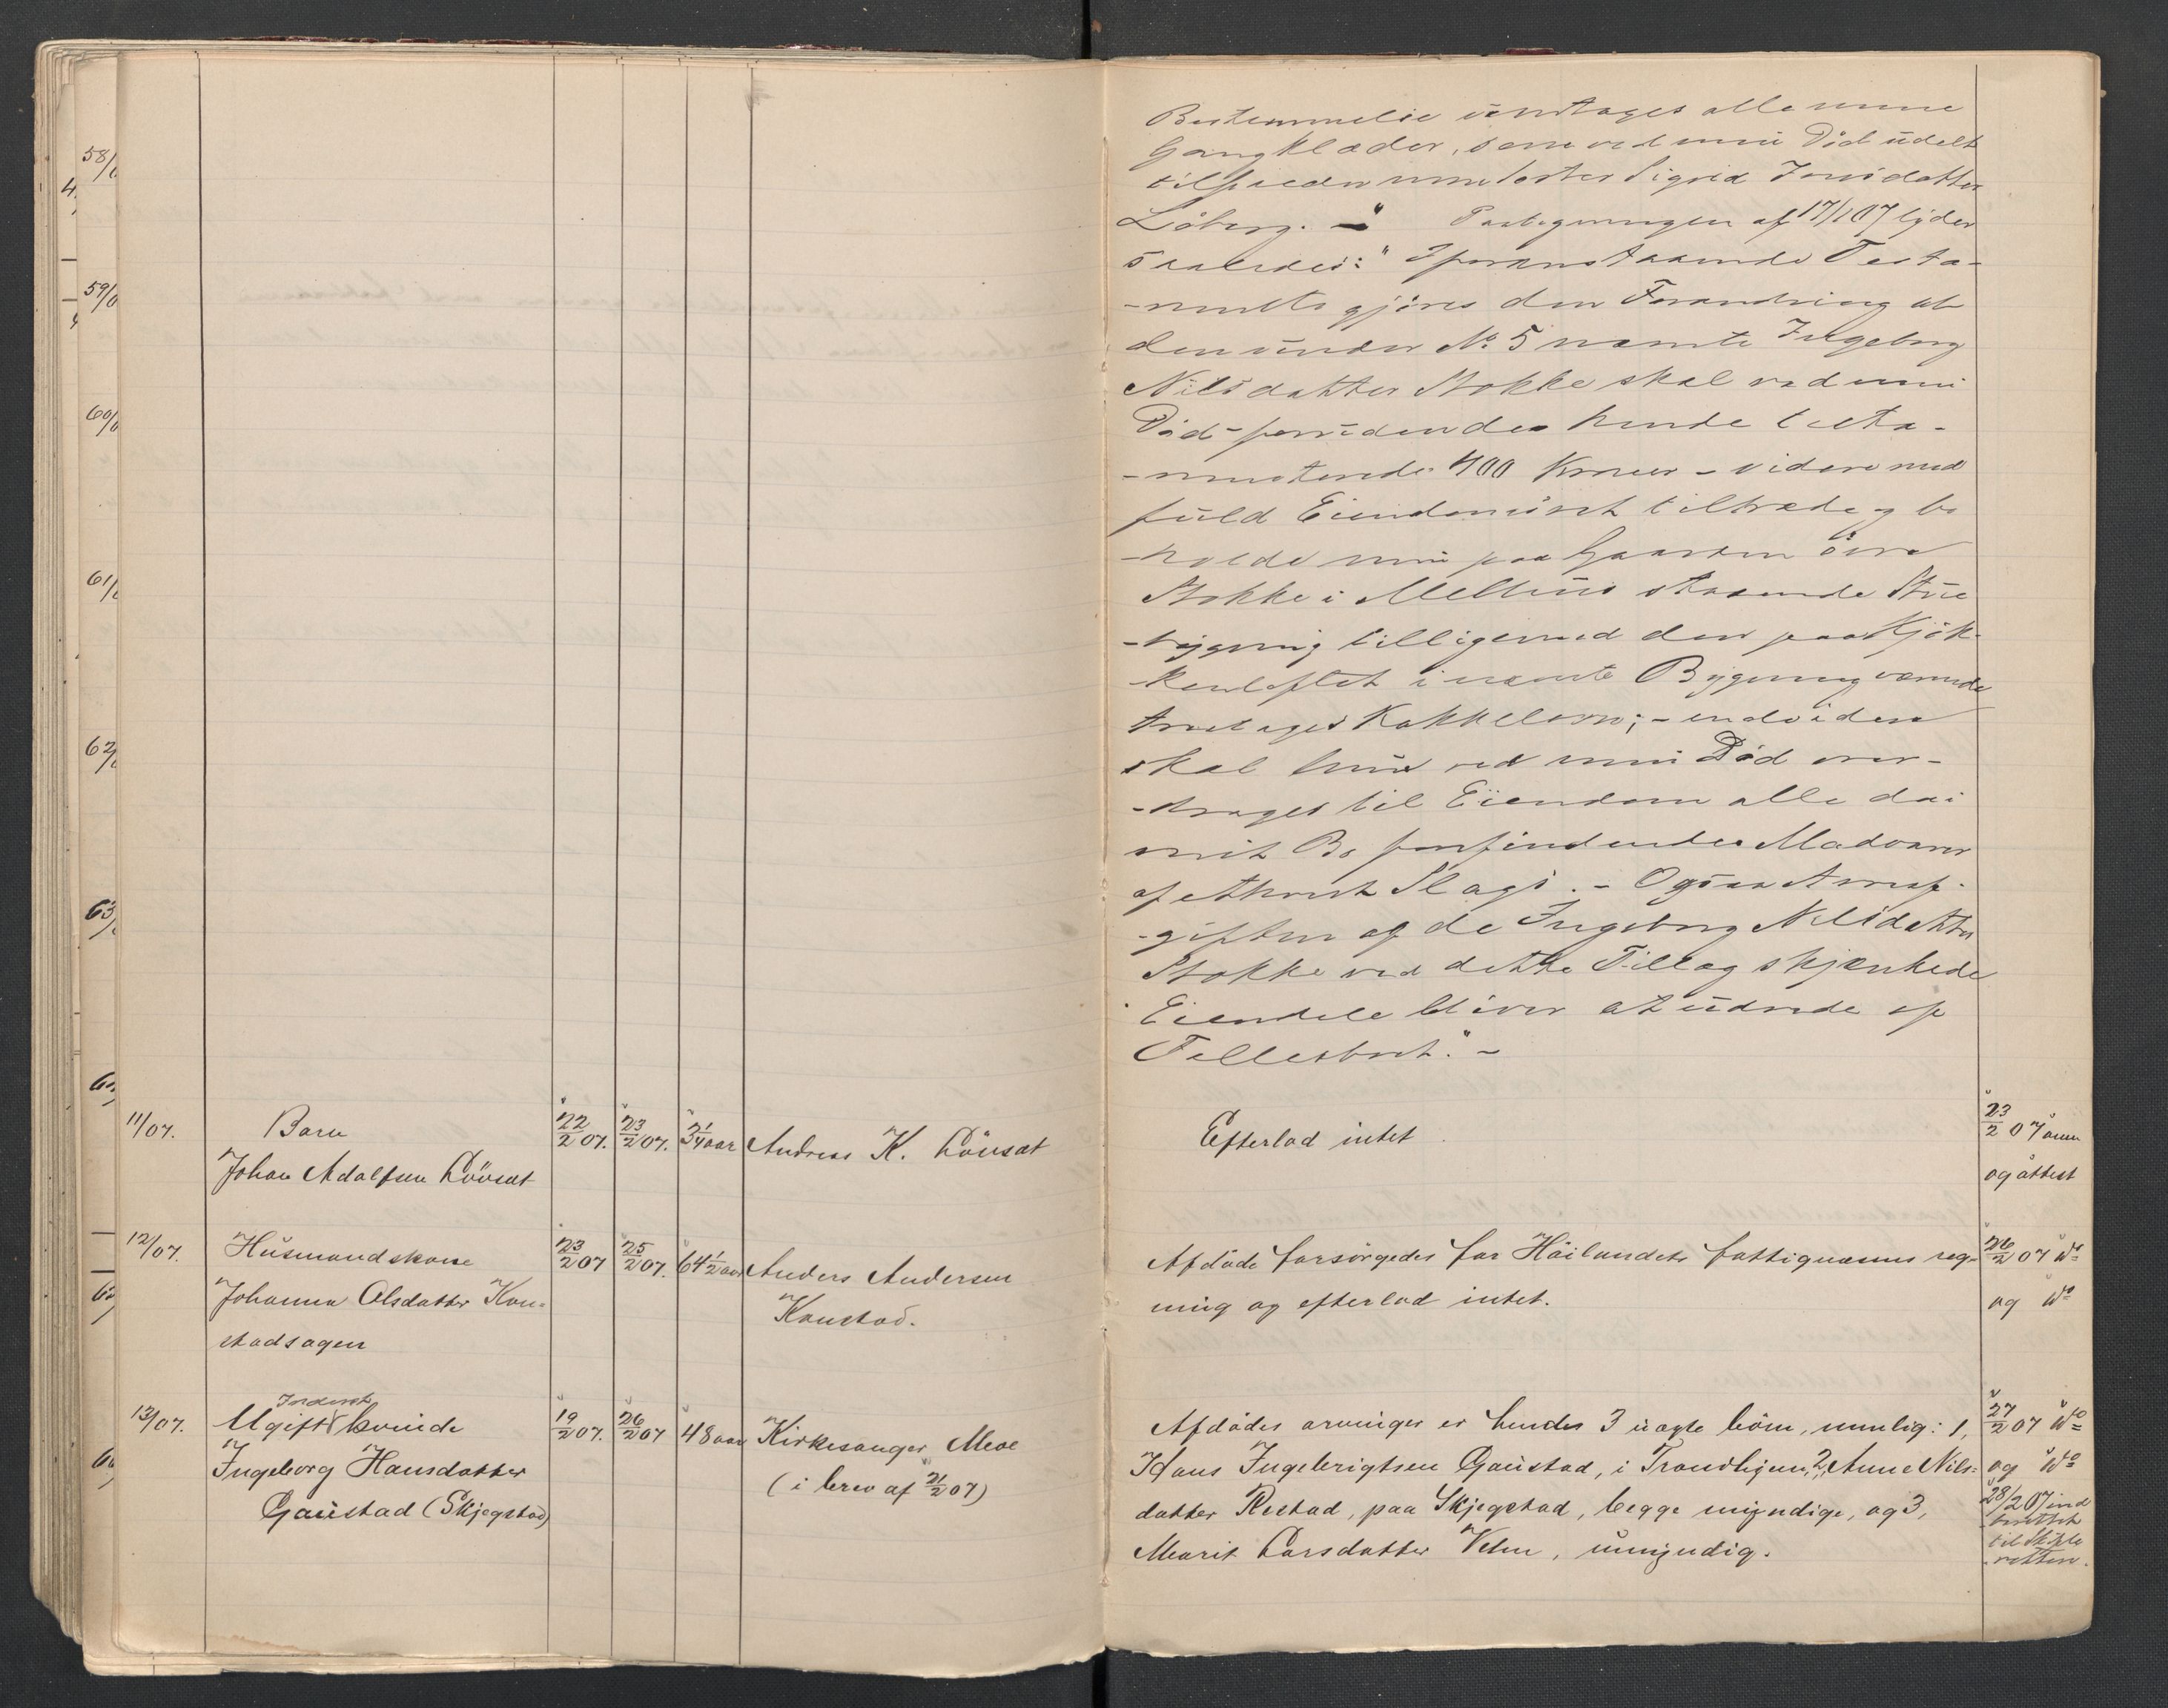 Bestemmelse undtages alle mine
Gangklæder, som ved min Död udelt
tilfalder min Sigrid Jonsdatter
Löberg. —" Paategningen af 17/1 07 lyder
saaledes: "I foranstaaende Testa-
-mente gjöres den Forandring at
den under No 5 nævnte Ingeborg
Nilsdatter Stokke skal ved min
Död - foruden de hende testa-
-menterede 400 Kroner - videre med
fuld Eiendomsret tiltræde og be
-holde min paa Gaarden övre
Stokke i Melhus staaende Stue
-bygning tilligemed den paa Kjök-
-kenloftet i nævnte Bygning værende
treetages Kakkelovn; - endvidere
skal hun ved min Död over-
-drages til Eiendom alle de i
mit Bo forefindendes Madvarer
af ethvert Slags. - Ogsaa Arveaf-
-giften af de Ingeborg Nilsdatter
Stokke ved dette Tillæg skjænkede
Eiendele bliver at udrede af
Fællesboet." -
11/07.
Barn
Johan Adolfsen Lövset
22/2 07.
23/2 07.
3 1/4 aar
Andreas K. Lövset
Efterlod intet
23/2 07 anm
og attest
12/07.
Husmandskone
Johanna Olsdatter Kon-
stadsagen
23/2 07
25/2 07.
64 1/2 aar
Anders Andersen
Konstad.
Afdöde forsörgedes for Höilandets fattigvæsens reg-
ning og efterlod intet.
26/2 07 do
og do
13/07.
Inderst
Ugift kvinde
Ingeborg Hansdatter
Gaustad (Skjegstad)
19/2 07.
26/2 07
48 aar
Kirkesanger Moe
(i brev af 21/2 07)
Afdödes arvinger er hendes 3 uægte börn, nemlig: 1,
Hans Ingebrigtsen Gaustad, i Trondhjem, 2, Anne Nils-
datter Restad, paa Skjegstad, begge myndige, og 3,
Marit Larsdatter Velm, umyndig.
27/2 07 do
og do
28/2 07 ind
-berettet
til Skifte
-retten.
58/0
59/0
60/0
61/0
62/0
63/